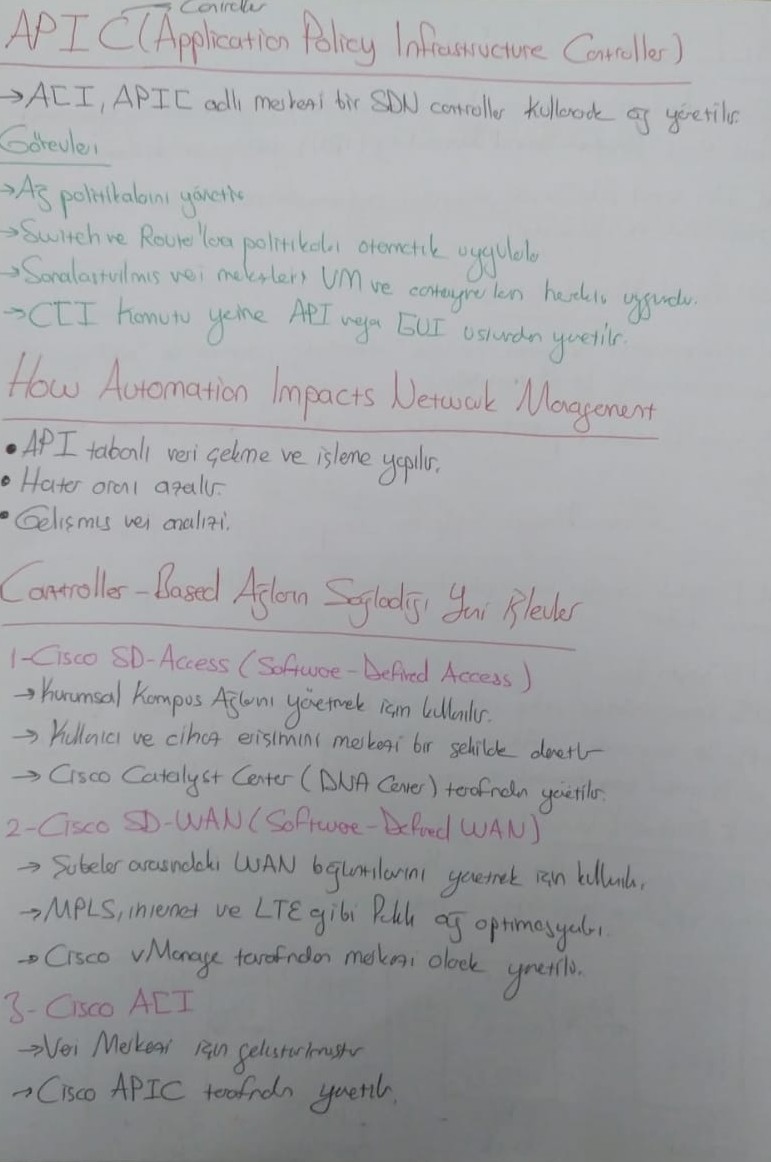 Controller
APIC (Application Policy Infrastructure Controller)
→ ACI, APIC adlı merkezi bir SDN controller kullanarak ağ yönetilir.
Görevleri
→ Ağ politikalarını yönetir
→ Switch ve Router'lara politikaları otomatik uygular
→ Sanallaştırılmış veri merkezleri VM ve containerler için uygundur.
→ CLI komutu yerine API veya GUI üstünden yönetilir.
How Automation Impacts Network Management
• API tabanlı veri çekme ve işleme yapılır.
• Hata oranı azalır.
• Gelişmiş veri analizi.
Controller-Based Ağların Sağladığı Yeni İşlevler
1-Cisco SD-Access (Software-Defined Access)
→ Kurumsal Kampüs Ağlarını yönetmek için kullanılır.
→ Kullanıcı ve cihaz erişimini merkezi bir şekilde denetler
→ Cisco Catalyst Center (DNA Center) tarafından yönetilir.
2-Cisco SD-WAN (Software-Defined WAN)
→ Şubeler arasındaki WAN bağlantılarını yönetmek için kullanılır.
→ MPLS, internet ve LTE gibi farklı ağ optimasyonları.
→ Cisco vManage tarafından merkezi olarak yönetilir.
3- Cisco ACI
→ Veri Merkezi için geliştirilmiştir
→ Cisco APIC tarafından yönetilir.